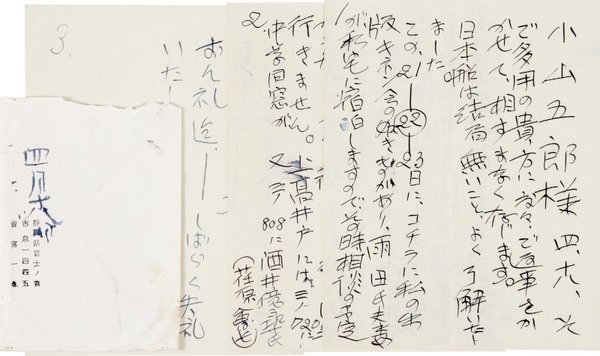 小山五郎様 四、六、
ご多用の貴方に度々ご返事をか
かせて、相すまなく存じます。
日本船は結局無いこと、よく了解いたし
ました
この、21―22―23日に、コチラに私の出
版キネン会の如きものがあり、雨田夫妻
が私宅に宿泊しますのでその時相談の予定
2
行きません。上高井戸には
中学同窓が、又 808に酒井億尋氏
3.
おん礼迄、―しばらく失礼
いたし
四月六日
静岡県富士ノ宮
市泉一四四五
曽宮一念